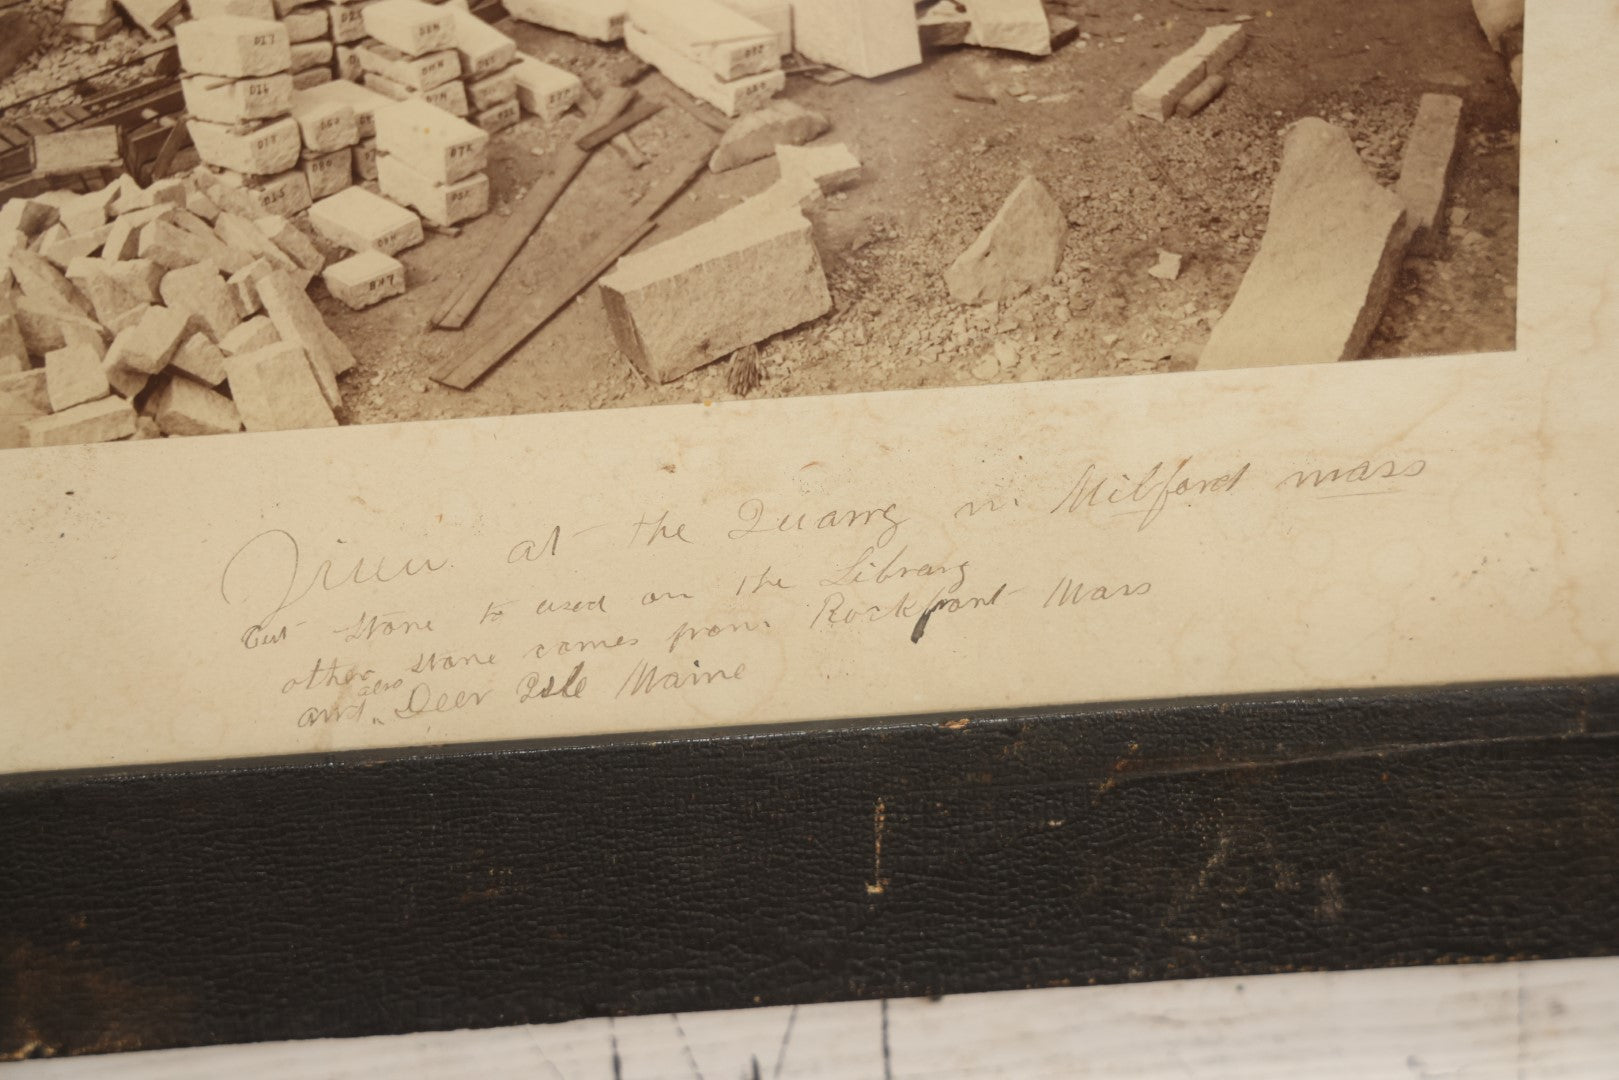 D17
D16
D14
D15
D80
D72
D84
LHB
View at the Quarry in Milford Mass
Cut Stone to used on the Library
other stone comes from Rockport Mass
and also Deer Isle Maine